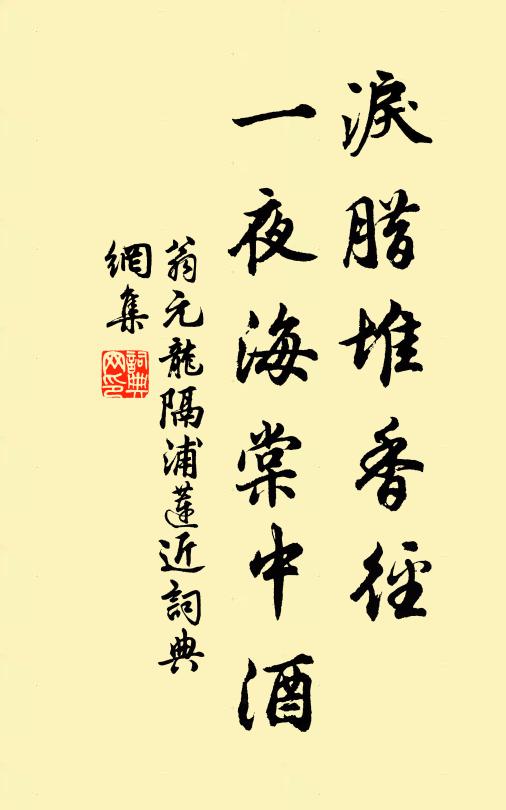 淚腊堆香徑
一夜海棠中酒
翁元龍隔浦蓮近詞典
網集
詞典
网印